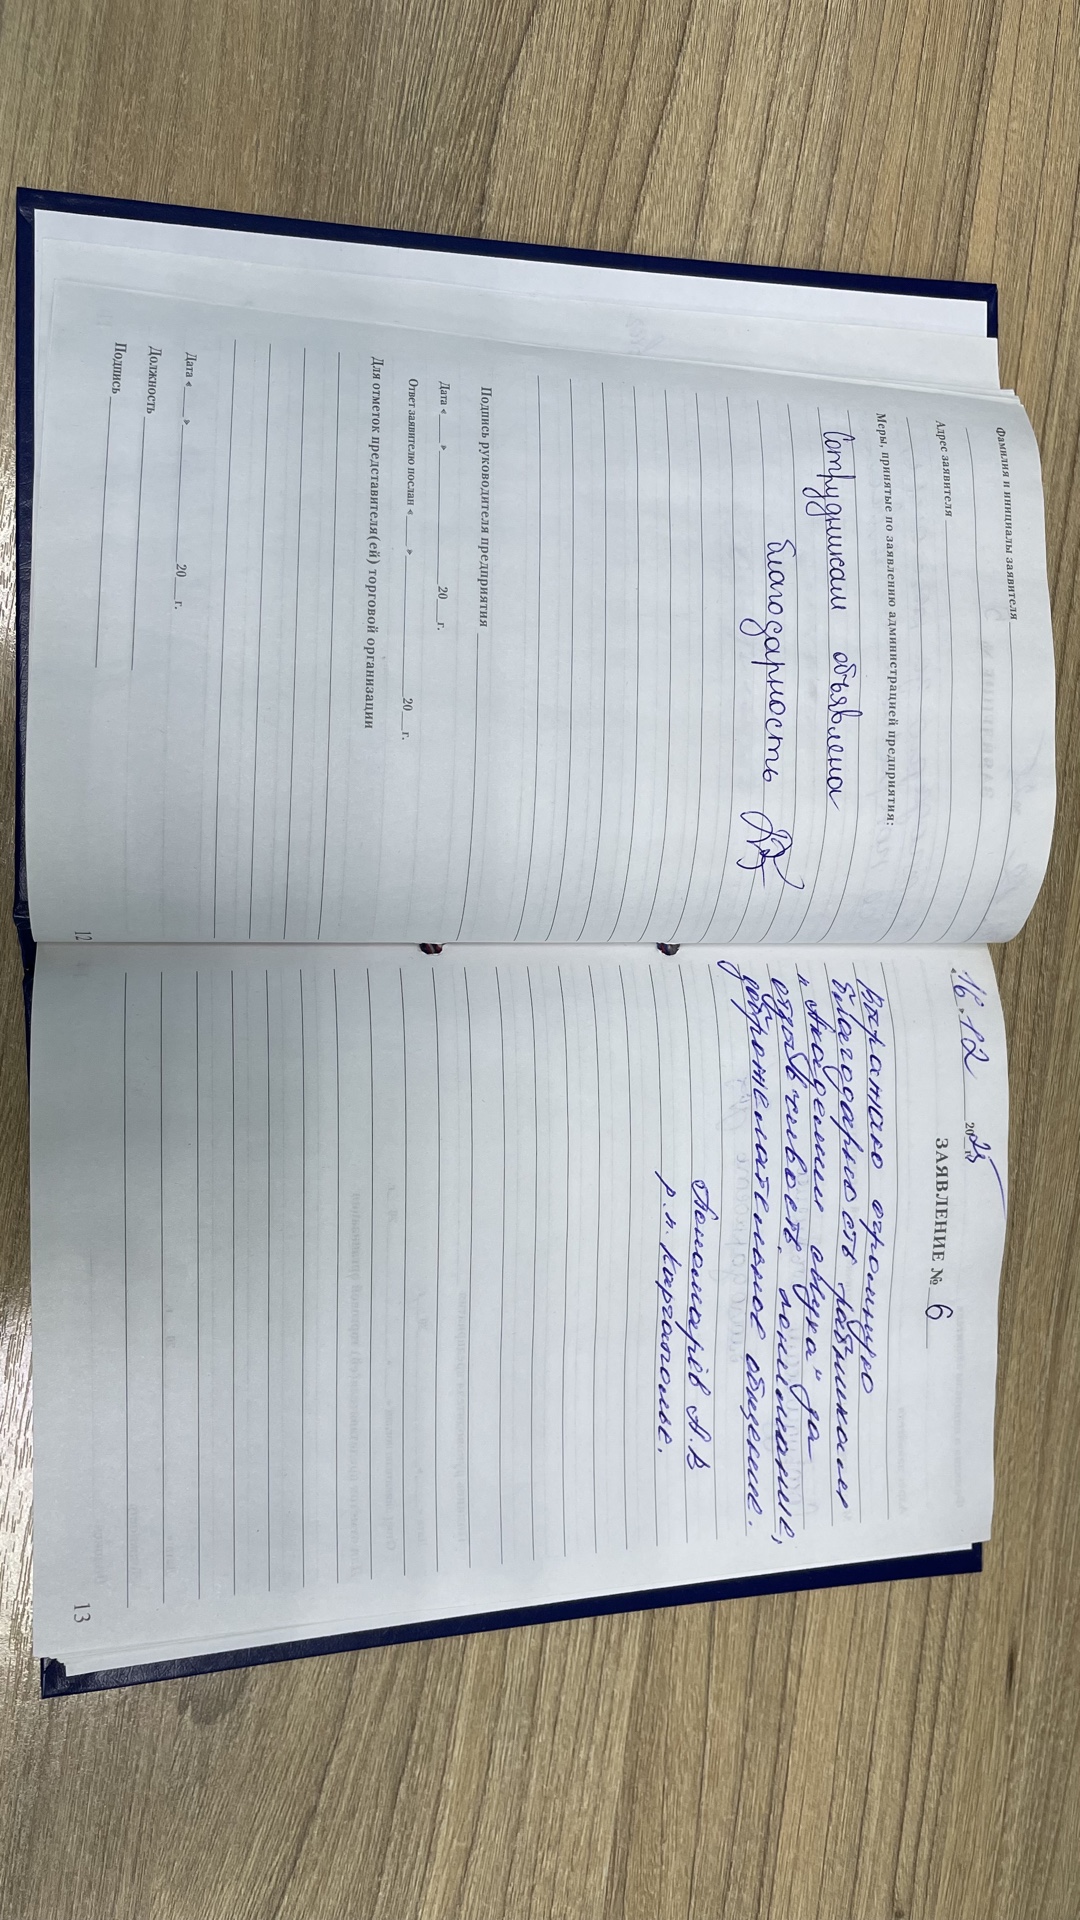 Фамилия и инициалы заявителя
Адрес заявителя
Меры, принятые по заявлению администрацией предприятия:
Сотрудникам объявлена
благодарность
Подпись руководителя предприятия
Дата «___» ___ 20__г.
Ответ заявителю послан «___» ___ 20__г.
Для отметок представителя(ей) торговой организации
Дата «___» ___ 20__г.
Должность
Подпись
12
«16» 12 2025г.
ЗАЯВЛЕНИЕ № 6
Выражаю огромную
благодарность работникам
"Академии слуха" за
отзывчивость, понимание,
доброжелательное общение.
Пономарёв А.В
р.п. Каргаполье.
13